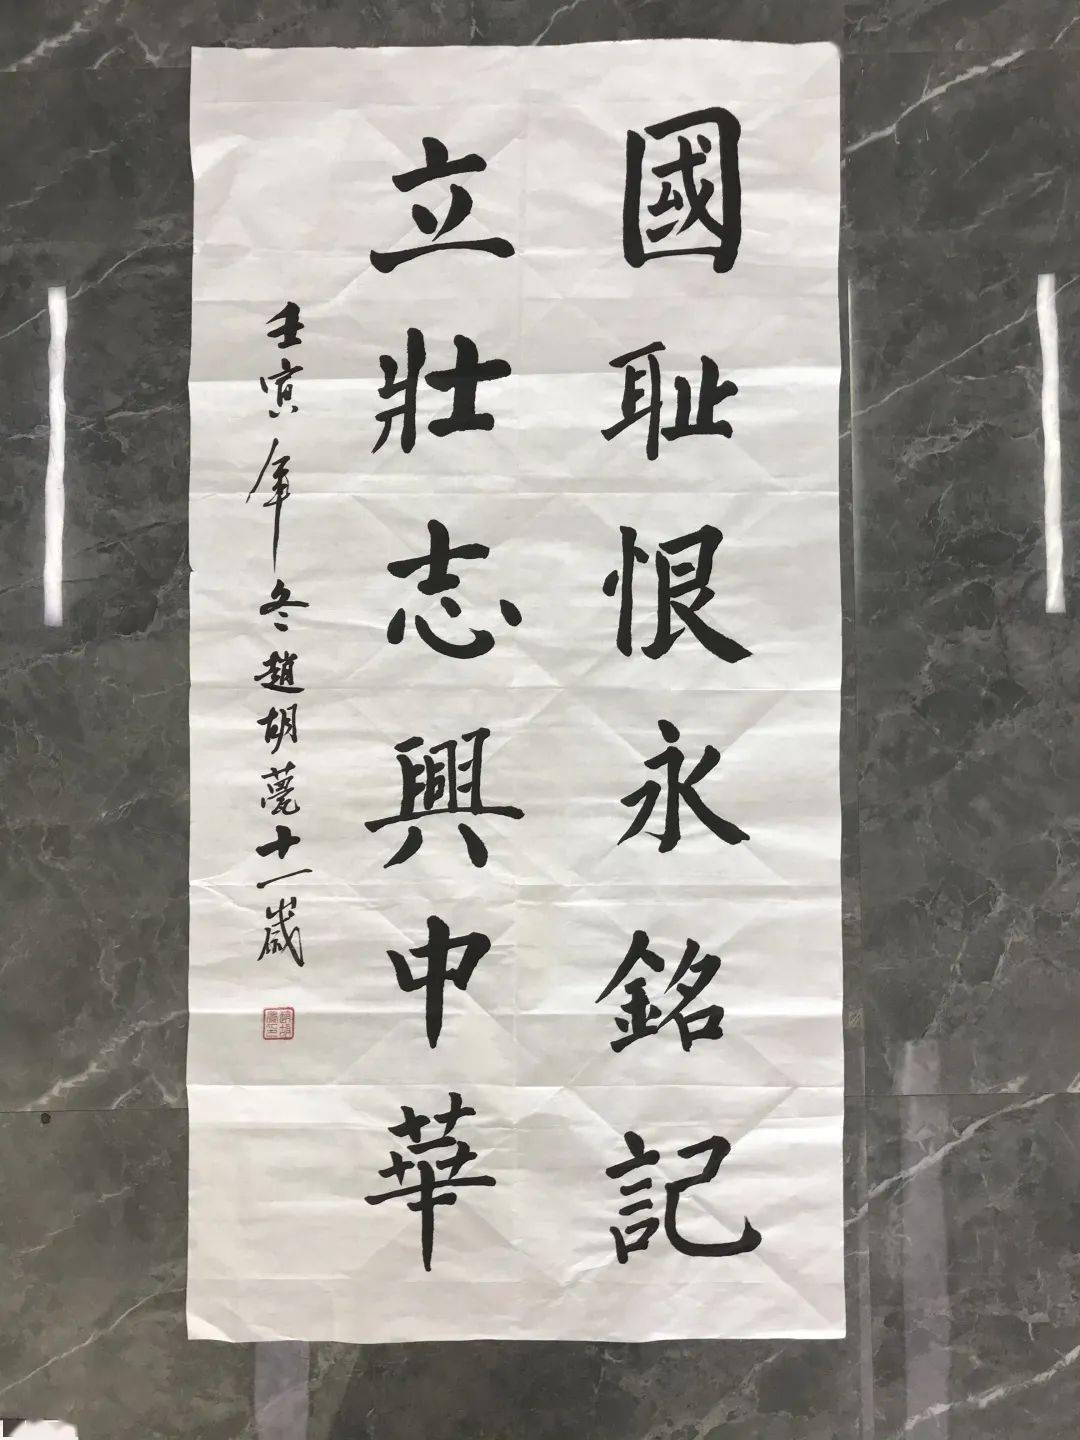 國耻恨永銘記
立壯志興中華
壬寅年冬趙胡薨十一歲